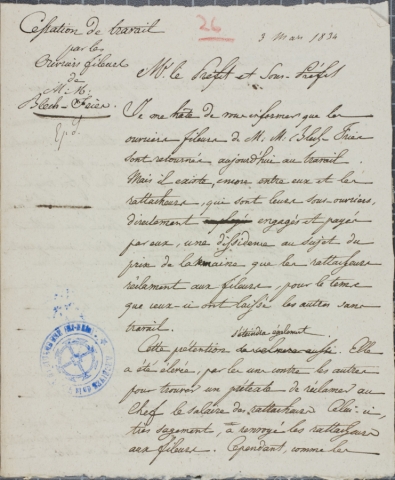 Cessation de travail
par les
Ouvriers fileurs
de
M. M.
Blech Frères.
26
3 Mars 1834
Mr. le Préfet et Sous-Préfet
Je me hâte de vous informer que les
ouvriers fileurs de M. M. Blech Frères
sont retournés aujourd'hui au travail.
Mais il existe, encore entre eux et les
rattacheurs, qui sont leurs sous-ouvriers,
directement engagés et payés
par eux, une dissidence au sujet du
prix de la semaine que les rattacheurs
réclament aux fileurs, pour le tems
que ceux-ci ont laissé les autres sans
travail.
s'éteindra également.
Cette prétention Elle
a été élevée, par les uns contre les autres
pour trouver un prétexte de réclamer au
Chef le salaire des rattacheurs Celui-ci,
très sagement, a renvoyé les rattacheurs
aux fileurs. Cependant, comme les